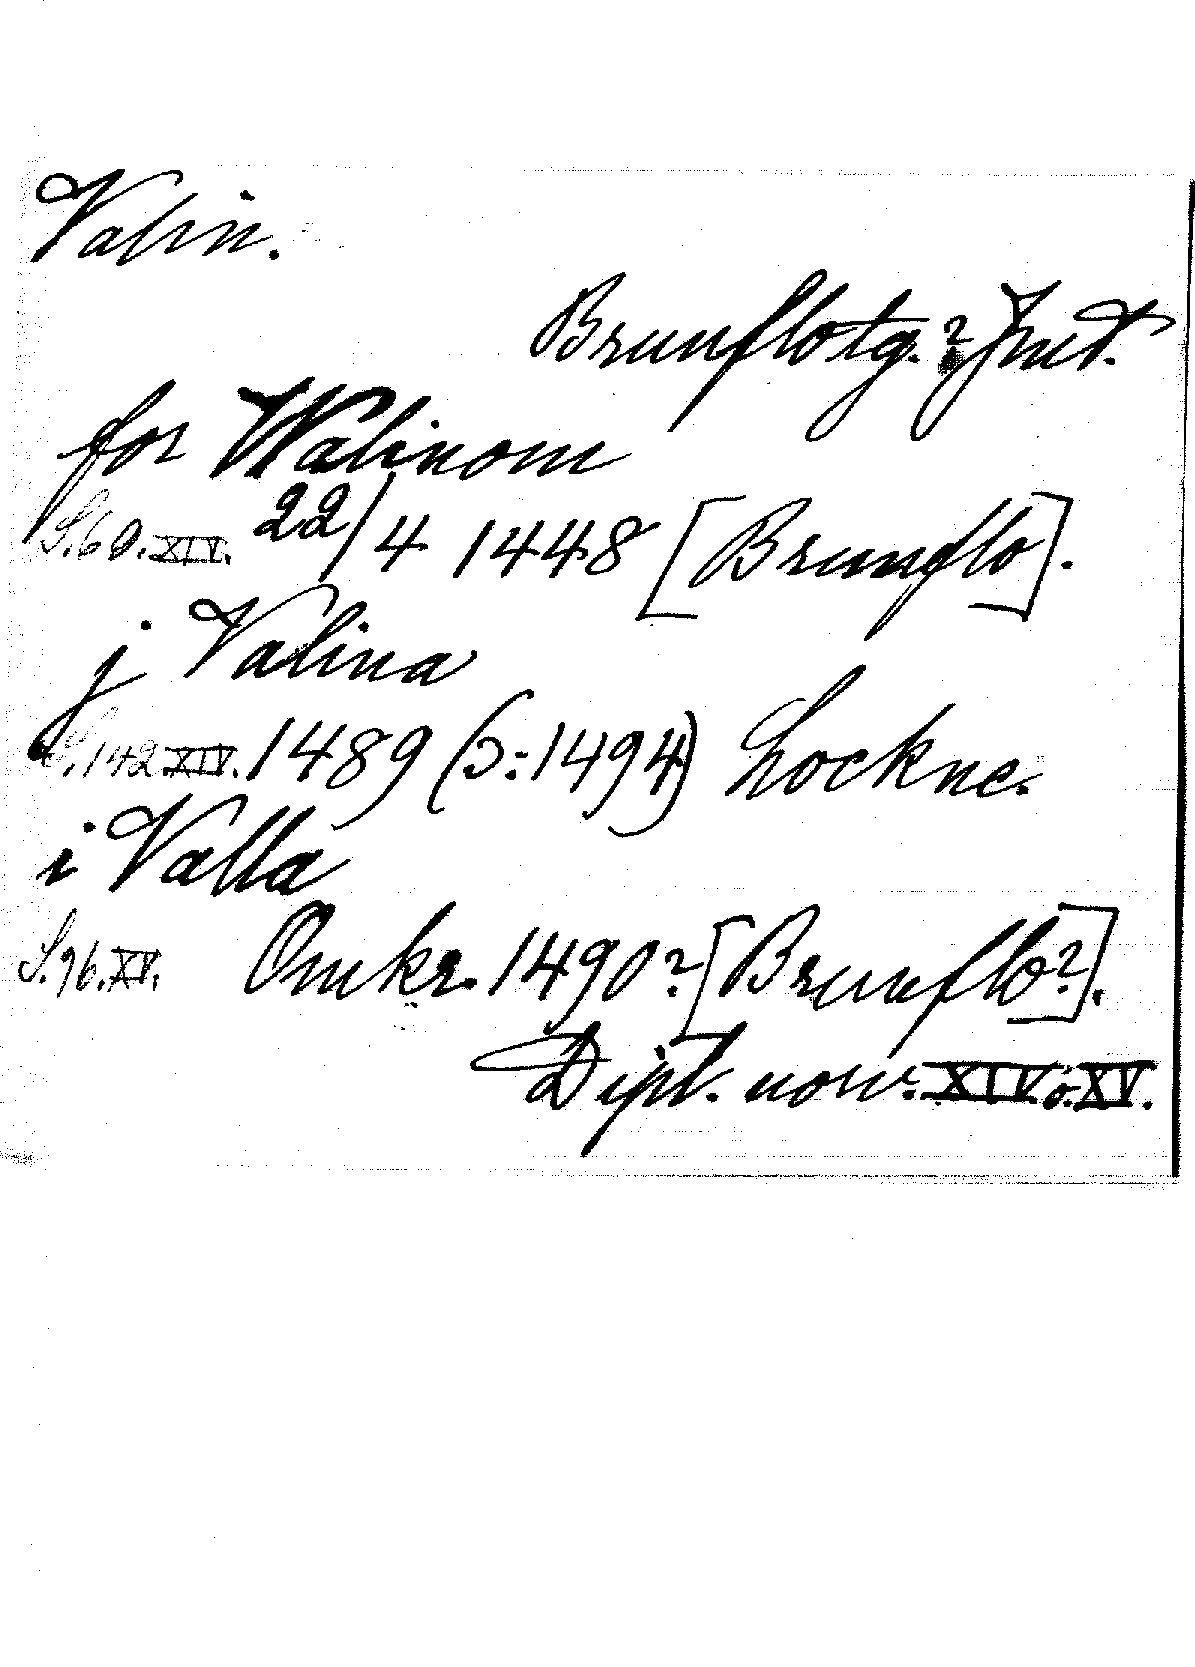 Valin.
Brunflotg.? Jmt.
for Walinom
S.60.XIV. 22/4 1448 [Brunflo].
j Valina
S.142 XIV. 1489 (ɔ:1494) Lockne.
i Valla
S.96.XV. Omkr. 1490? [Brunflo?].
Dipl. norv. XIV o. XV.